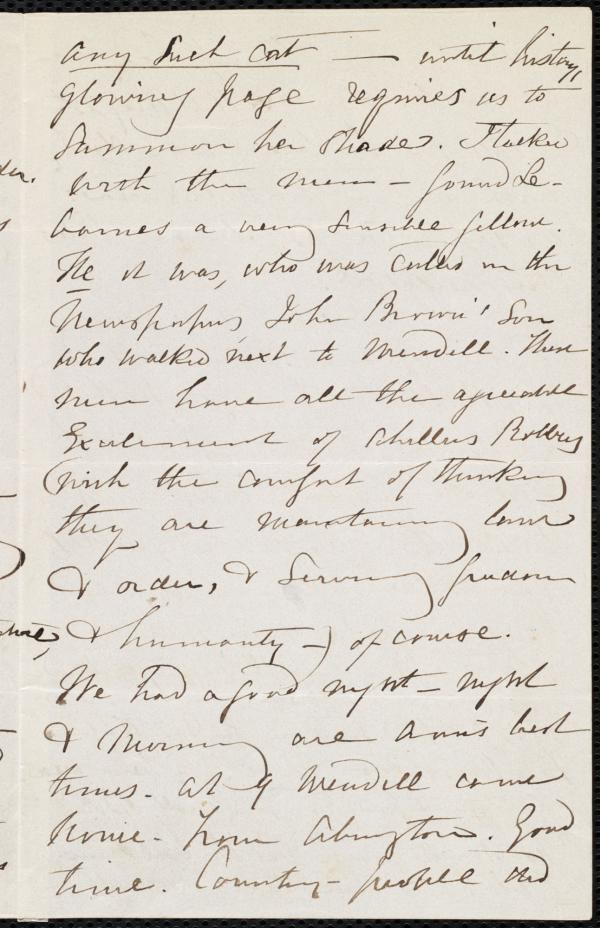 any such cat — until history's
glowing page requires us to
summon her shade. I talked
with the men — found Le-
barnes a very sensible fellow.
He it was, who was called in the
Newspapers, John Brown's Son
who walked next to Wendell. These
men have all the agreeable
Excitement of Schiller's Robbers
(with the comfort of thinking
they are maintaining law
& order, & serving freedom
& humanity —) of course.
We had a good night — night
& Morning are Ann's best
times. At 9 Wendell came
home — from Abington. Good
time. Country — people did